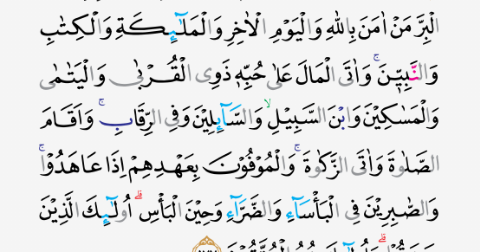 الْبِرَّ مَنْ اٰمَنَ بِاللّٰهِ وَالْيَوْمِ الْاٰخِرِ وَالْمَلٰٓئِكَةِ وَالْكِتٰبِ
وَالنَّبِيّٖنَ ۚ وَاٰتَى الْمَالَ عَلٰى حُبِّهٖ ذَوِى الْقُرْبٰى وَالْيَتٰمٰى
وَالْمَسٰكِيْنَ وَابْنَ السَّبِيْلِ ۙ وَالسَّآئِلِيْنَ وَفِى الرِّقَابِ ۚ وَاَقَامَ
الصَّلٰوةَ وَاٰتَى الزَّكٰوةَ ۚ وَالْمُوْفُوْنَ بِعَهْدِهِمْ اِذَا عَاهَدُوْا ۚ
وَالصّٰبِرِيْنَ فِى الْبَاْسَآءِ وَالضَّرَّآءِ وَحِيْنَ الْبَاْسِ ؕ اُولٰٓئِكَ الَّذِيْنَ